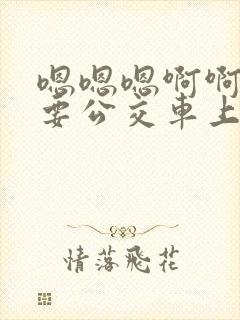 嗯嗯嗯啊啊
要公交車上
情落飛花